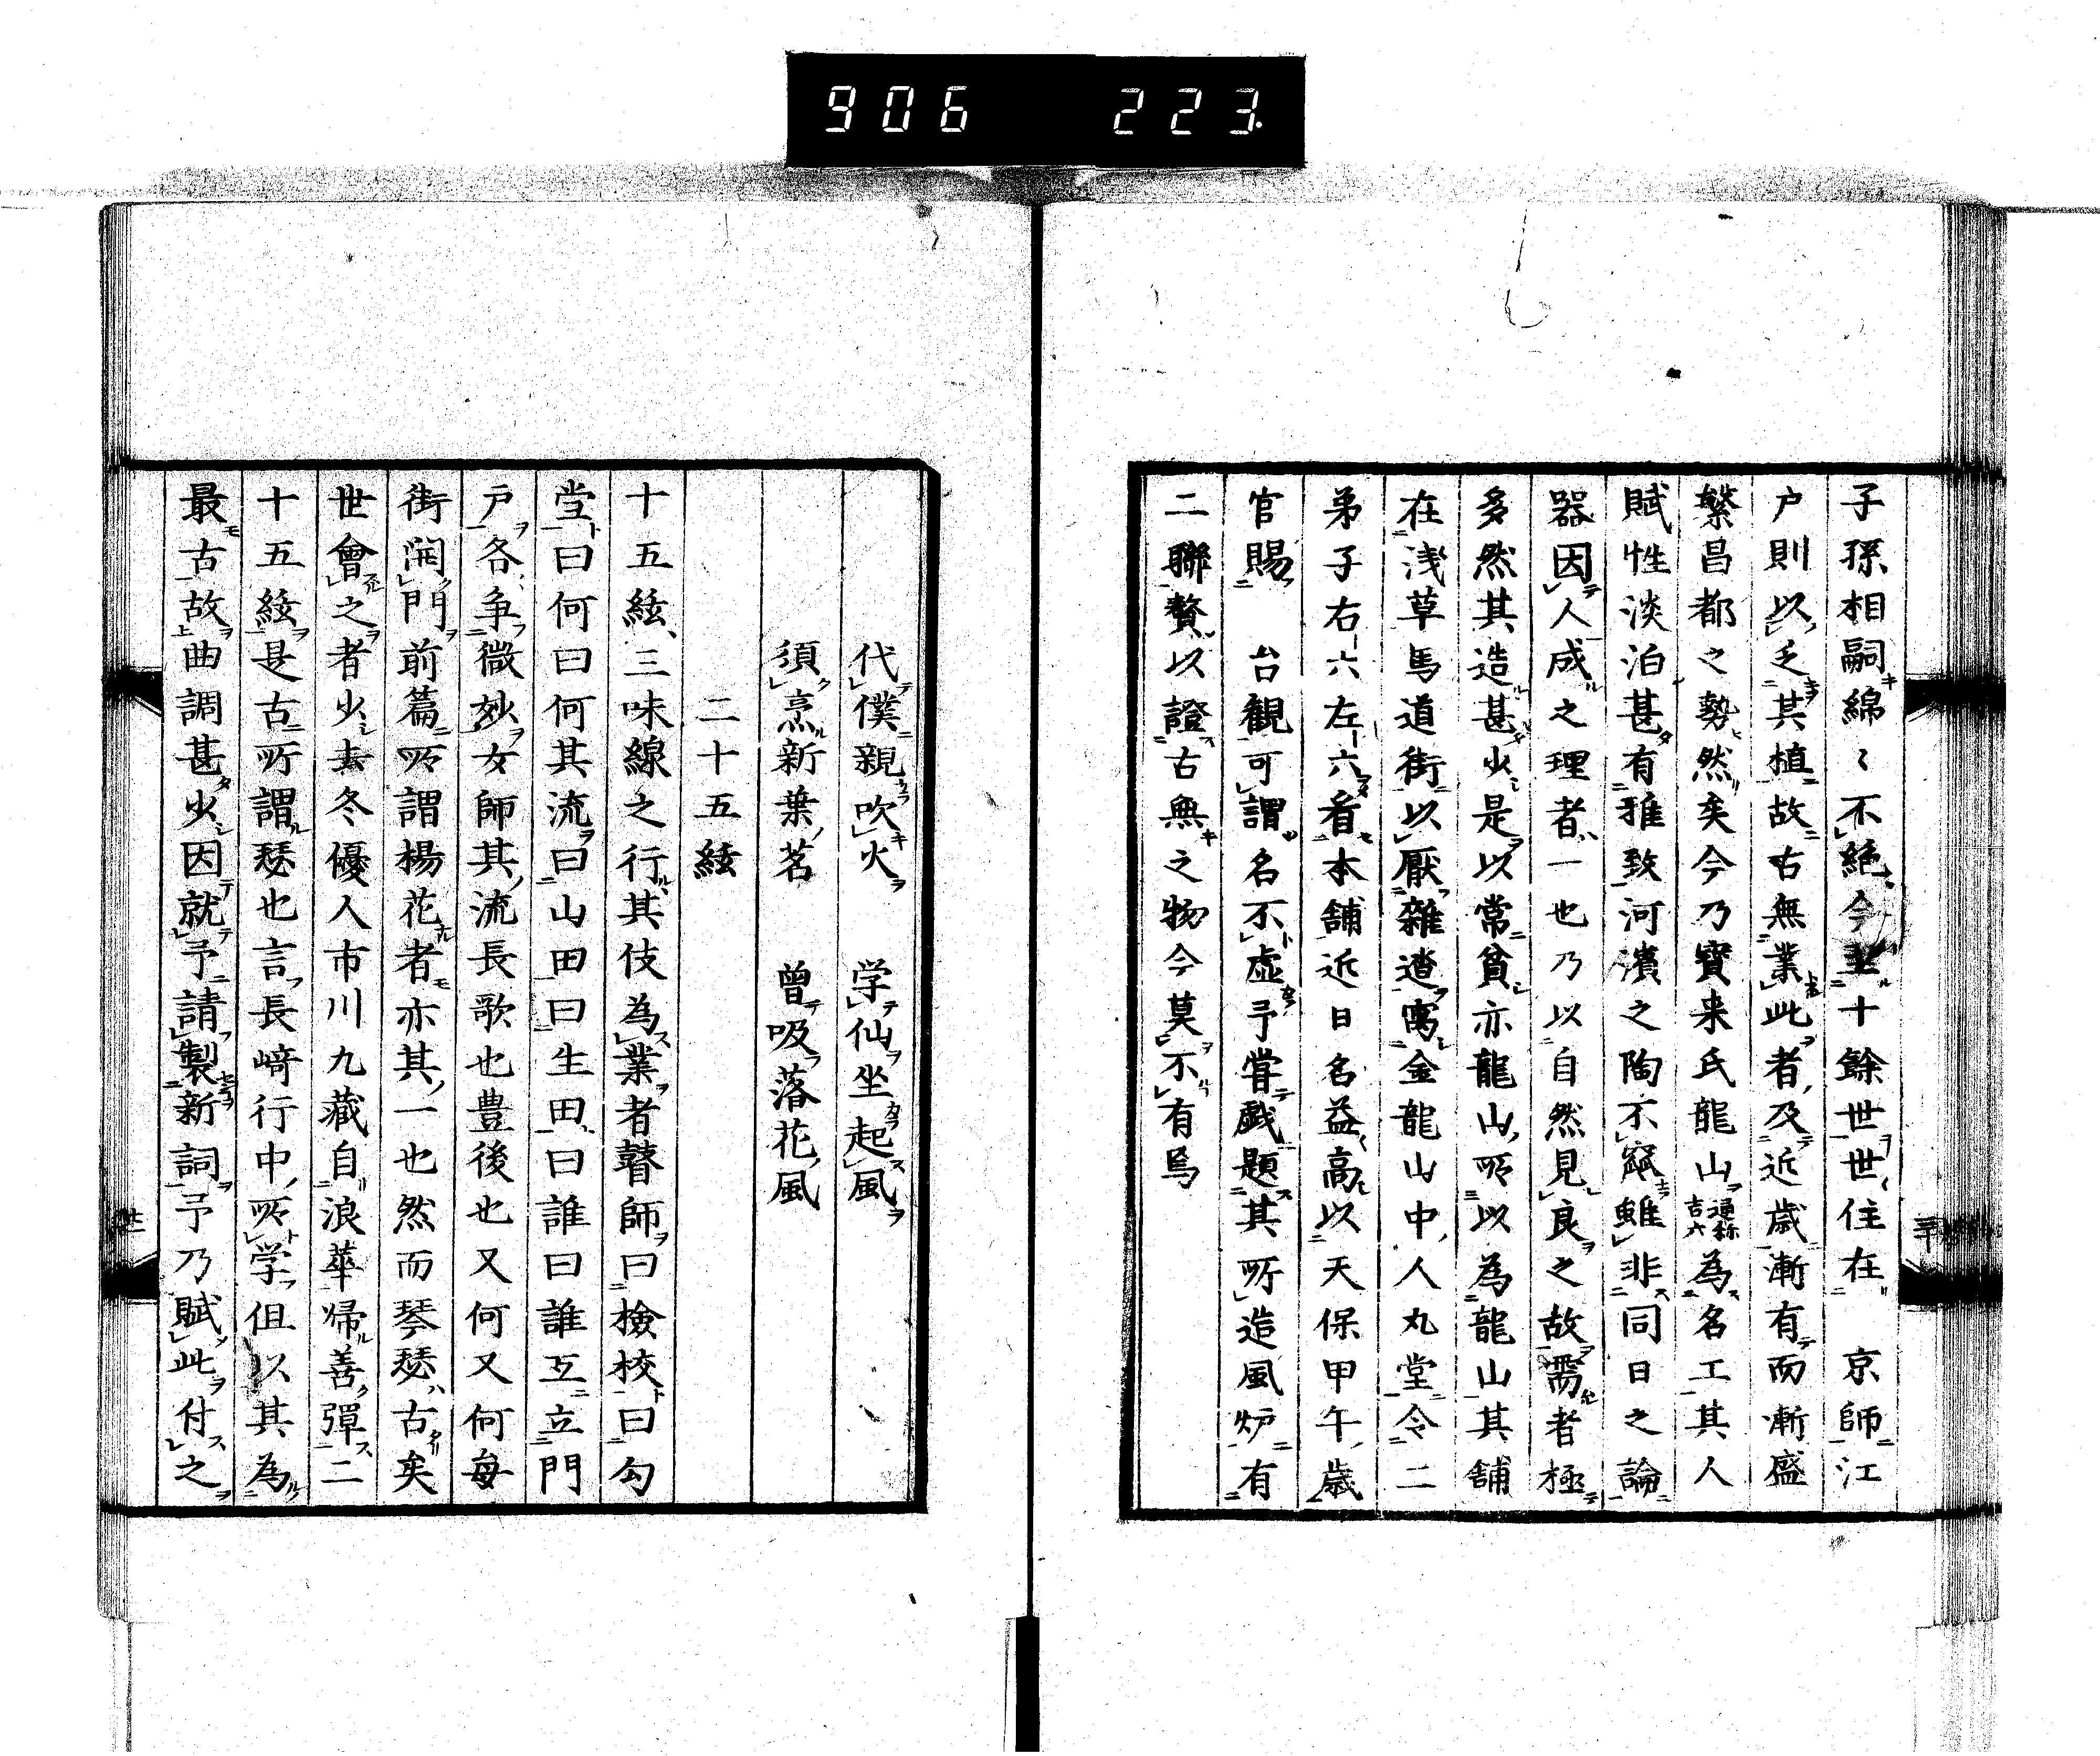 906 223.
子孫相嗣綿〻不絶今至十餘世世住在 京師江
戸則以乏其植故古無業此者及近歳漸有而漸盛
繁昌都之勢然矣今乃寳来氏龍山通称吉六為名工其人
賦性淡泊甚有雅致河濱之陶不窳雖非同日之論
器因人成之理者一也乃以自然見良之故需者極
多然其造甚少是以常貧亦龍山所以為龍山其舗
在浅草馬道街以厭雜遝寓金龍山中人丸堂令二
弟子右六左六看本舗近日名益高以天保甲午歳
官賜 台観可謂名不虚予嘗戯題其所造風炉有
二聯贅以證古無之物今莫不有焉
代僕親吹火 学仙坐起風
須烹新葉茗 曽吸落花風
二十五絃
十五絃三味線之行其伎為業者瞽師曰撿校曰勾
堂曰何曰何其流曰山田曰生田曰誰曰誰互立門
戸各争微妙女師其流長歌也豊後也又何又何毎
街開門前篇所謂楊花者亦其一也然而琴瑟古矣
世會之者少去冬優人市川九蔵自浪華帰善彈二
十五絃是古所謂瑟也言長﨑行中所学但以其為
最古故曲調甚少因就予請製新詞予乃賦此付之